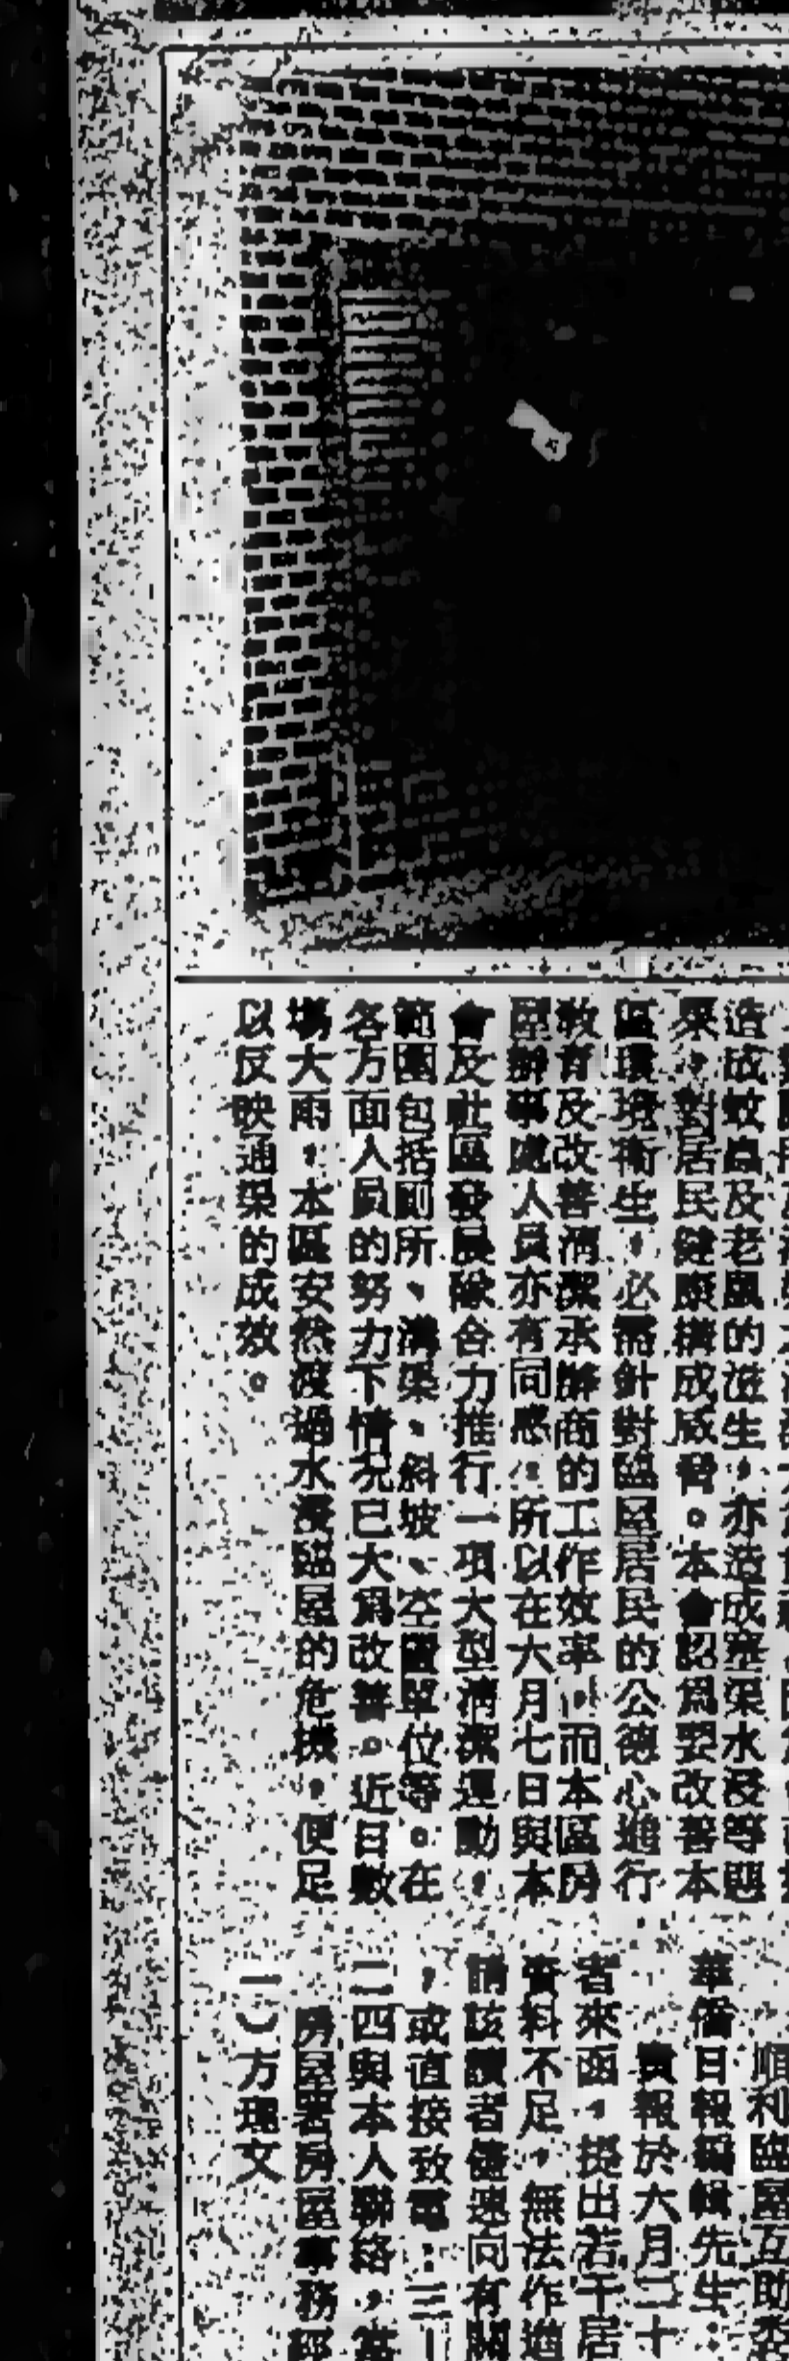 造成蚊蟲及老鼠的滋生，亦造成壅渠水浸等惡
果，對居民健康構成威脅。本會認爲要改善本
區環境衛生，必需針對臨屋居民的公德心進行
教育及改善清潔承辦商的工作效率，而本區房
屋辦事處人員亦有同感，所以在六月七日與本
會及社區發展隊合力推行一項大型清潔運動，
範圍包括廁所、溝渠、斜坡、空置單位等。在
各方面人員的努力下情况已大爲改善。近日數
場大雨，本區安然渡過水浸臨屋的危機，便足
以反映通渠的成效。
順利臨屋互助委
華僑日報編輯先生：
貴報於六月二十
者來函，提出若干居
資料不足，無法作進
請該讀者儘速向有關
，或直接致電：三—
二四與本人聯絡，
房屋署房屋事務經
一）方琨文